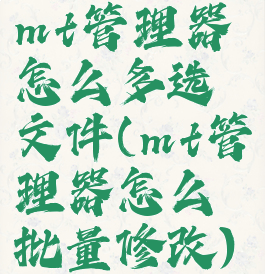 mt管理器
怎么多选
文件(mt管
理器怎么
批量修改)